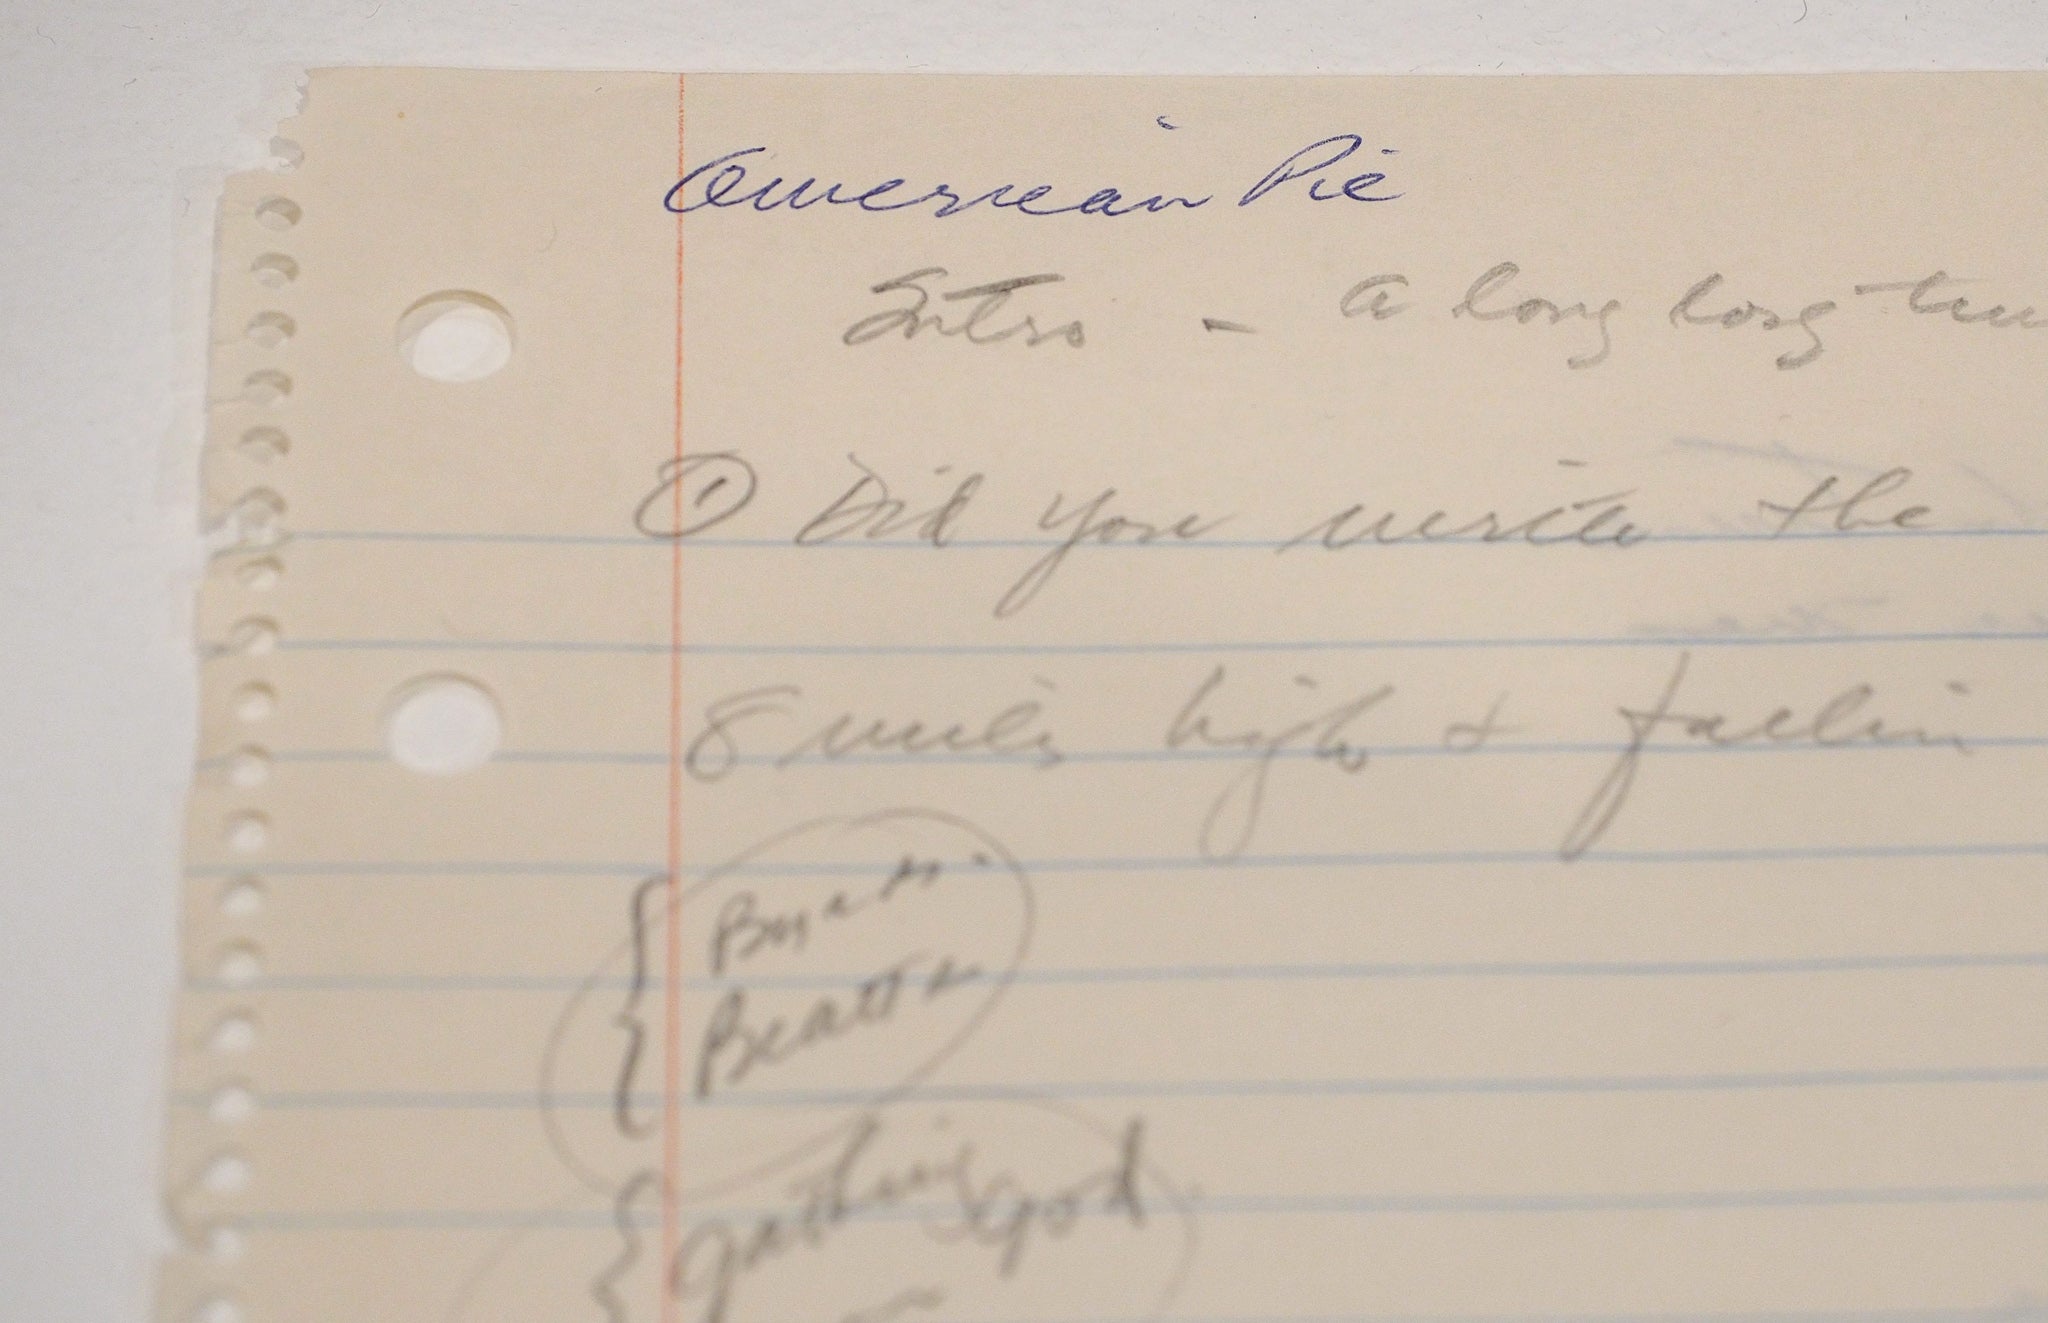 American Pie
Intro - a long long
① Did you write the
8 miles high & fallin
Byrds.
Beatles